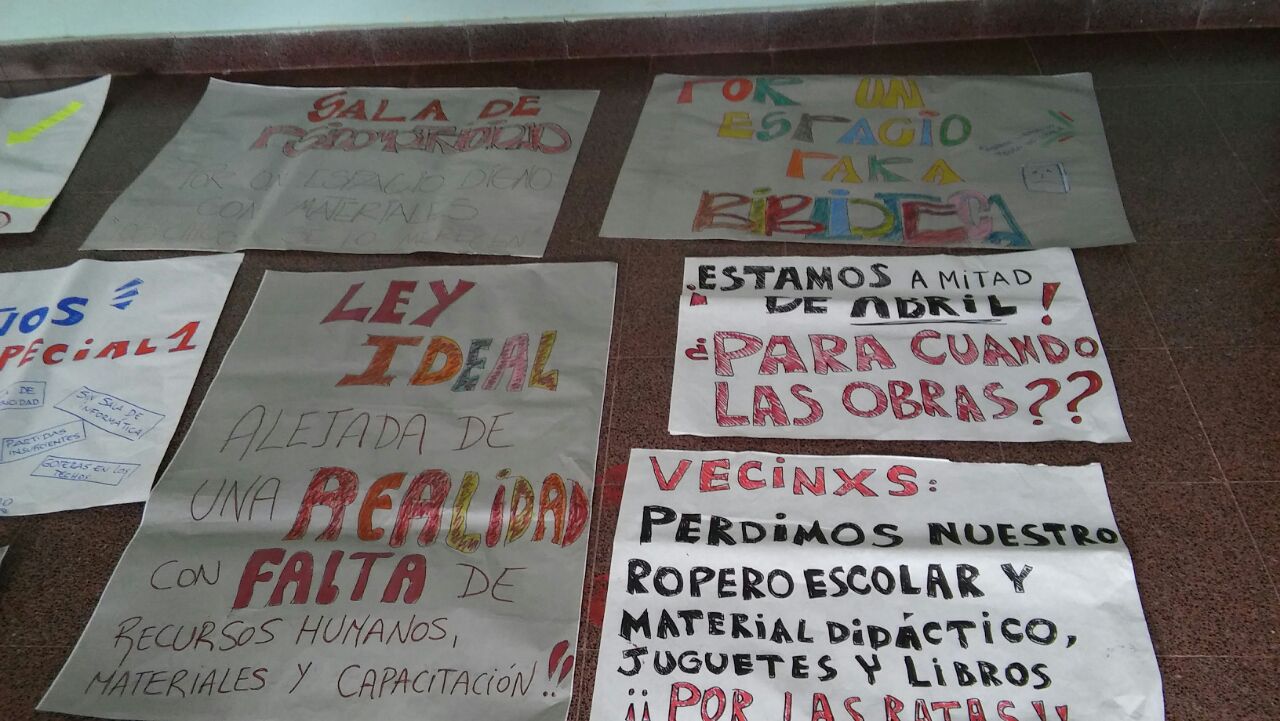 SALA DE
PSICOMOTRICIDAD
POR UN ESPACIO DIGNO
CON MATERIALES
SE LO MERECEN"
POR UN
ESPACIO
PARA
BIBLIOTECA
LEY
IDEAL
ALEJADA DE
UNA REALIDAD
CON FALTA DE
RECURSOS HUMANOS,
MATERIALES Y CAPACITACIÓN!!
¡ESTAMOS A MITAD
DE ABRIL!
¿PARA CUANDO
LAS OBRAS??
PECIAL 1
SIN SALA DE
INFORMÁTICA
PARTIDAS
INSUFICIENTES
GOTERAS EN LOS
TECHOS
VECINXS:
PERDIMOS NUESTRO
ROPERO ESCOLAR Y
MATERIAL DIDÁCTICO,
JUGUETES Y LIBROS
¡¡POR LAS RATAS!!